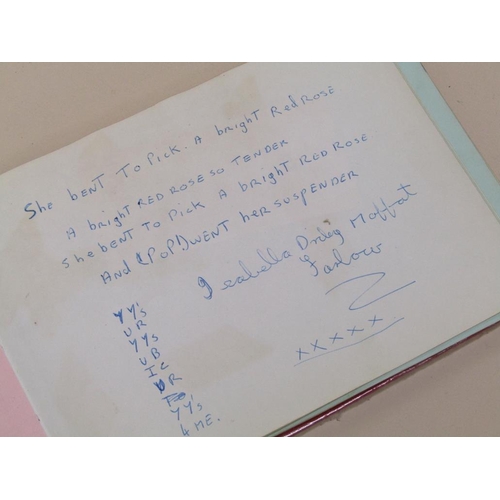 She bent To Pick. A bright Red Rose
A bright RED ROSE SO TENDER
She bent to Pick A bright RED ROSE
AND (POP) WENT her SUSPENDER
Isabella Moffat
YY's
UR
YYs
UB
IC
UR
TO
YY's
4 ME.
xxxxx.